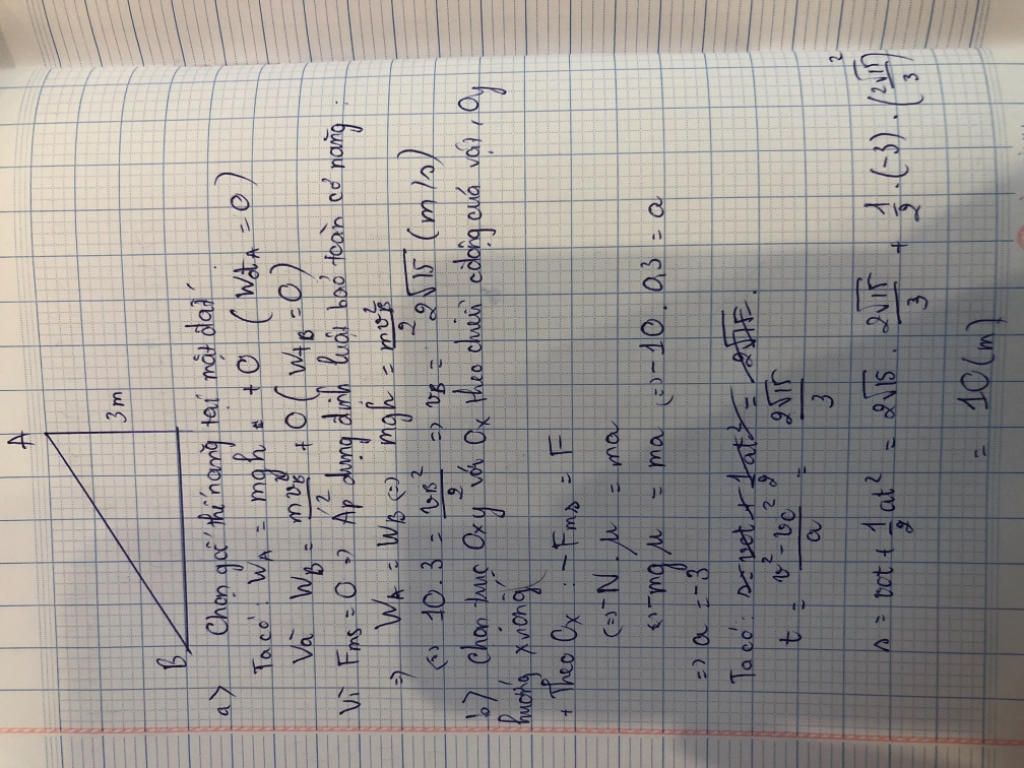 A
3m
B
a) Chọn gốc thế năng tại mặt đất
Ta có: W_A = mgh + 0 (Wđ_A = 0)
Và W_B = mv_B²/2 + 0 (Wt_B = 0)
Vì Fms = 0 => Áp dụng định luật bảo toàn cơ năng.
=> W_A = W_B <=> mgh = mv_B²/2
<=> 10.3 = v_B²/2 => v_B = 2√15 (m/s)
b) Chọn trục Oxy với Ox theo chiều cđộng của vật, Oy
hướng xuống
+ Theo Ox: -Fms = F
<=> -N.μ = ma
<=> -mgμ = ma <=> -10.0,3 = a
=> a = -3
Ta có: s = v0t + 1/2 at² = 2√15.
t = v² - v0²/a = 2√15/3
s = v0t + 1/2 at² = 2√15 . 2√15/3 + 1/2 . (-3) . (2√15/3)²
= 10 (m)